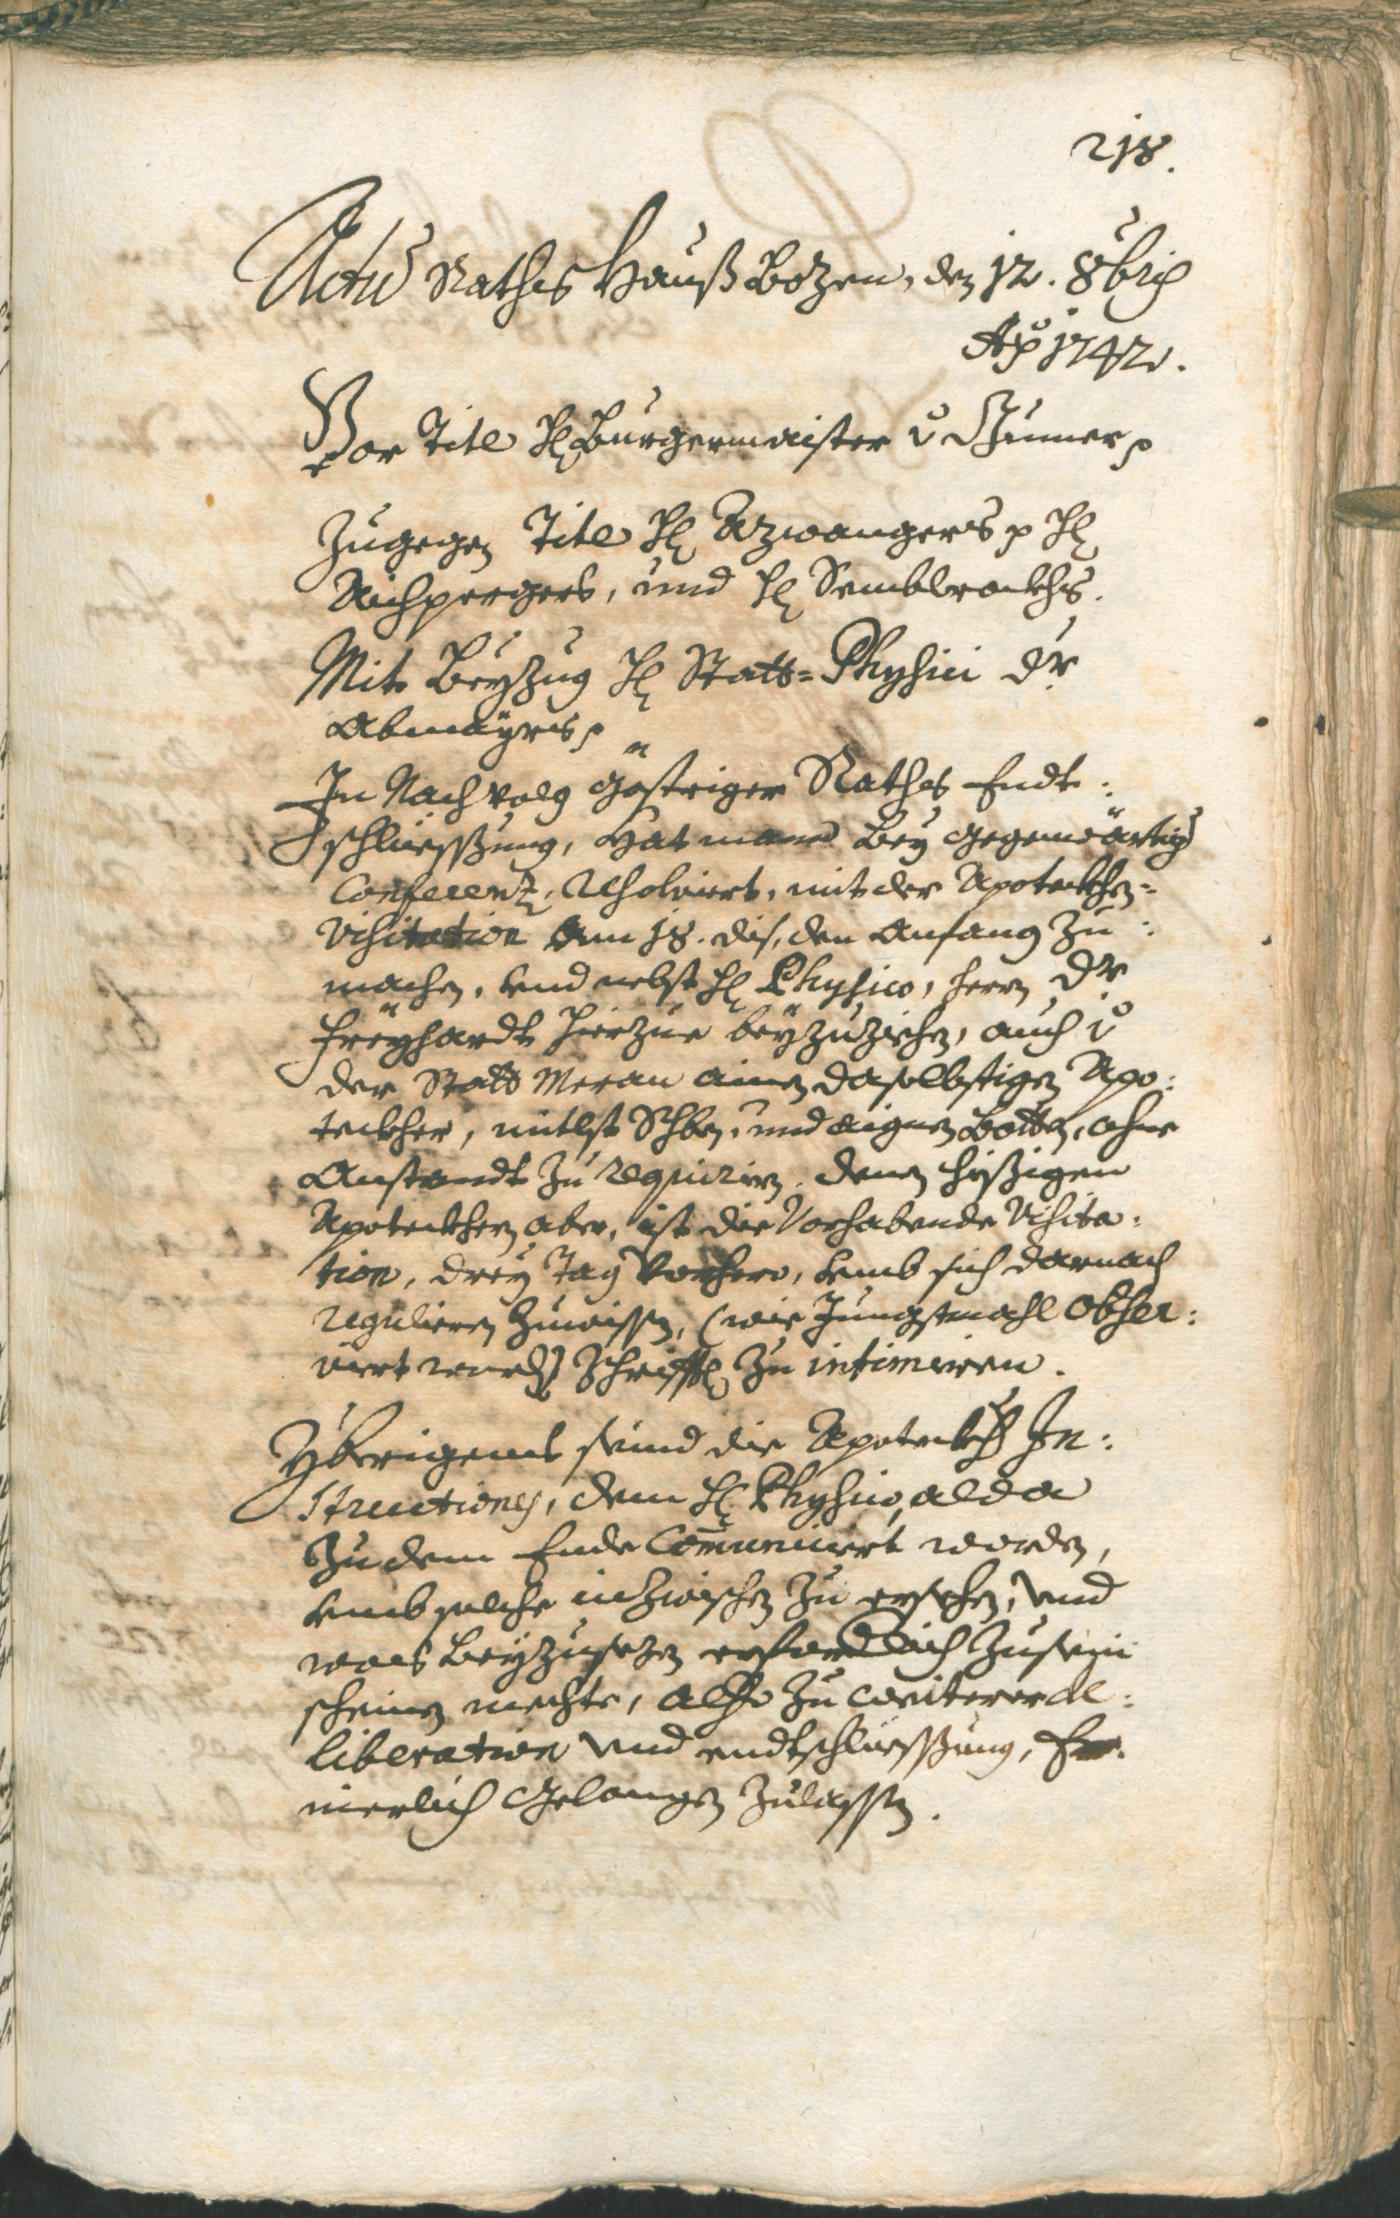 218.
Actū Rathshauß Bozen, den 12. 8bris
Aō 1742.
Vor Titl H. Burgermaister v Zumer p
Zugegen Titl H. Azwangers p H.
Aichpergers, und H. Semblrockhs.
Mit Beyzug H. Statt-Physici Dr.
Abmayrs p
In Nachvolg gestriger Raths Endt:
schliessung, hat mann bey gegenwärtig
Conferenz, resolviert, mit der Apoteckhen-
Visitation am 18. dis, den Anfang zu:
machen, und nebst H. Physico, herrn Dr
Freyhardt hierzue beyzuziehen, auch v
der Statt Meran ainen daselbstigen Apo:
teckher, mitlst Schben, und aignen Botten, ohne
Anstandt zu requirirn. denen hiesigen
Apoteckhern aber, ist die Vorhabende Visita:
tion, drey Tag vorhero, umb sich darnach
regulieren zuwissen, (wie Jungstmahl obser:
viert worden) schrifftl. zu intimieren.
Yberigens seind die Apoteckh. In:
structiones, dem H. Physico, alda
zu dem Ende Com̄uniciert worden,
umb solche inzwischen zu ersehen, und
was beyzusezen erforderlich zusein
scheinen mechte, also zu weiterer de:
liberation und endtschliessung,
innerlich gelangen zulassen.